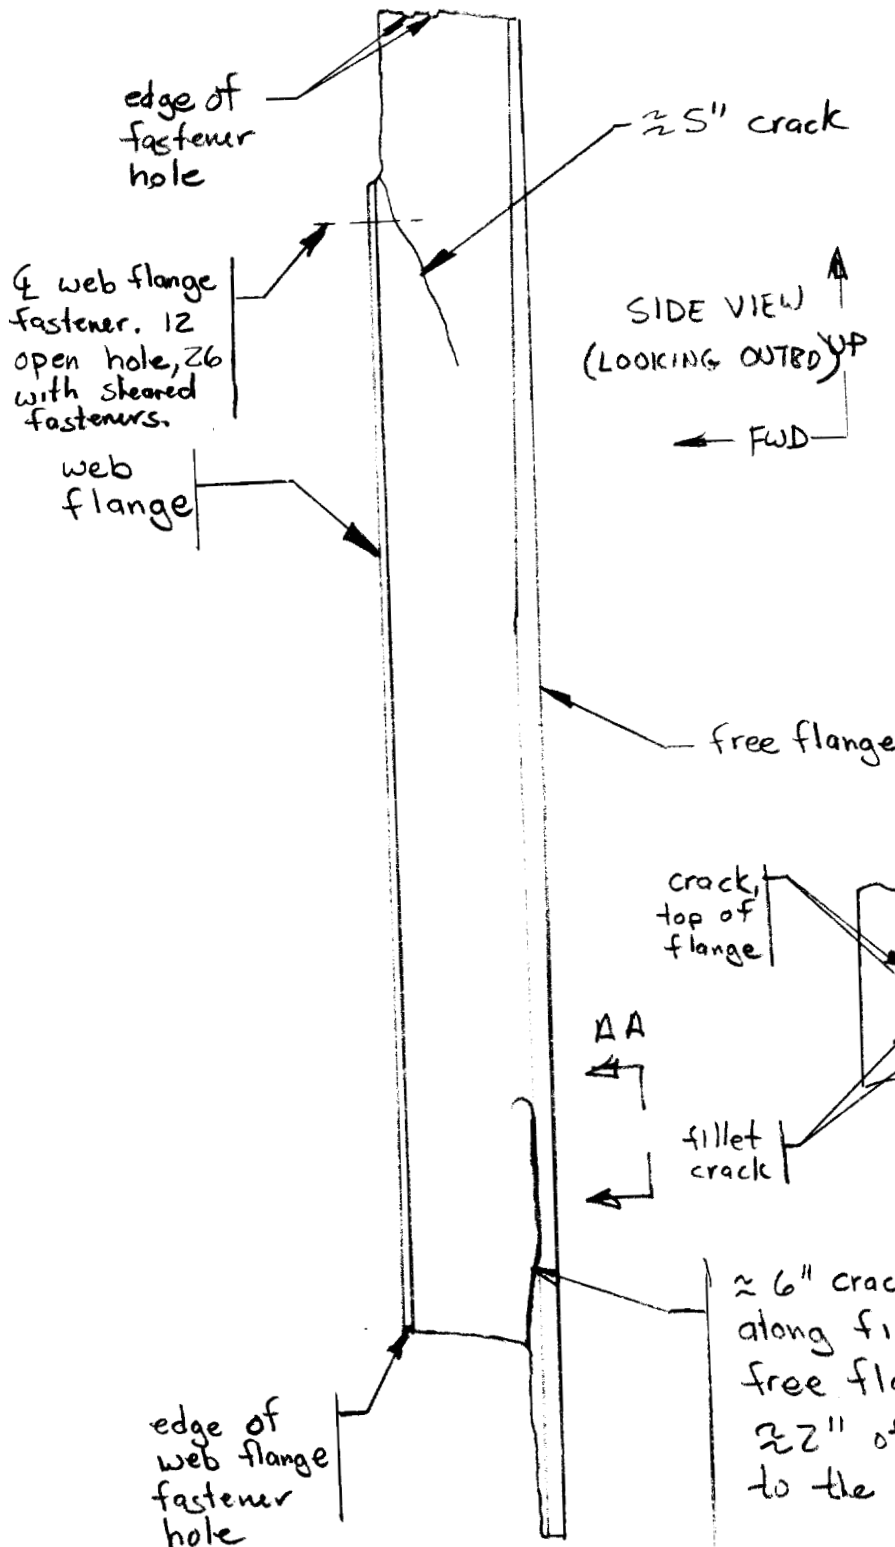 edge of
fastener
hole
≈ 5" crack
℄ web flange
fastener. 12
open hole, 26
with sheared
fasteners.
SIDE VIEW
(LOOKING OUTBD)
UP
FWD
web
flange
free flange
crack,
top of
flange
A A
fillet
crack
≈ 6" crac
along fi
free fla
≈ 2" of
to the
edge of
web flange
fastener
hole